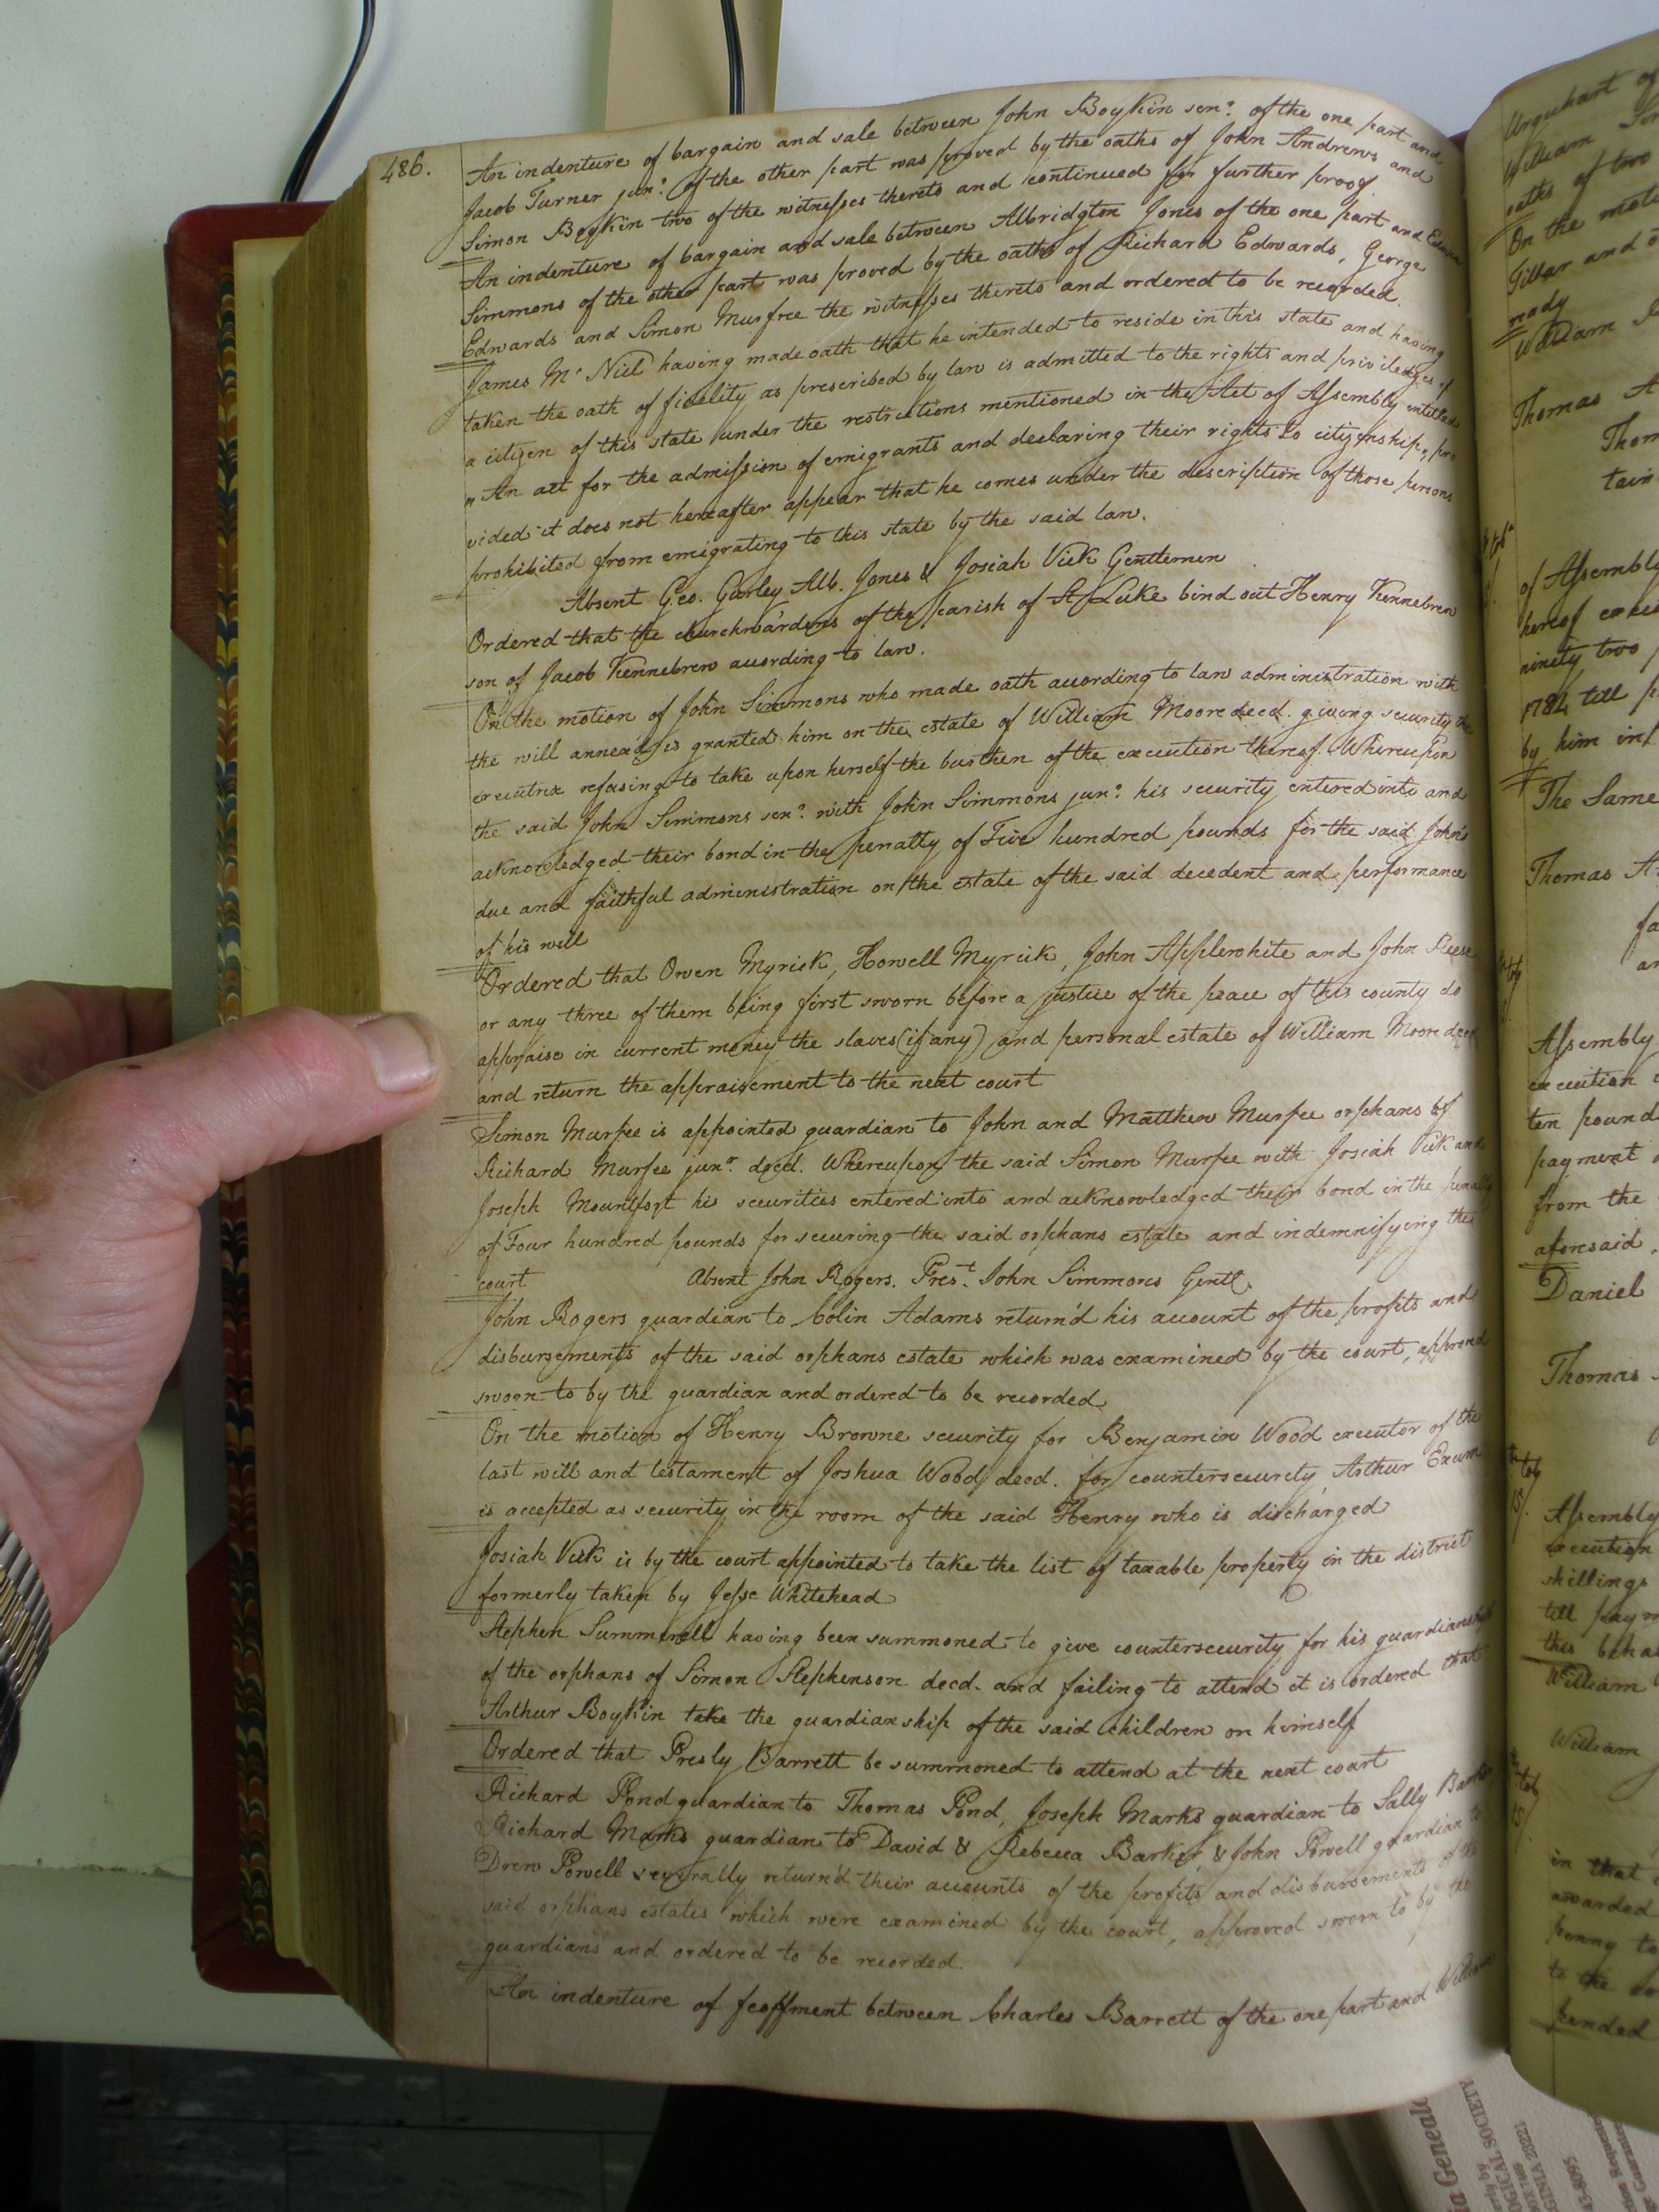 486.
An indenture of bargain and sale between John Boykin senr. of the one part and
Jacob Turner junr. of the other part was proved by the oaths of John Andrews and
Simon Boykin two of the witnesses thereto and continued for further proof.
An indenture of bargain and sale between Albridgton Jones of the one part and
Simmons of the other part was proved by the oaths of Richard Edwards, George
Edwards and Simon Murfree the witnesses thereto and ordered to be recorded.
James Mc. Niel having made oath that he intended to reside in this state and having
taken the oath of fidelity as prescribed by law is admitted to the rights and priviledges of
a citizen of this state under the restrictions mentioned in the Act of Assembly entitled
"An act for the admission of emigrants and declaring their rights to citizenship" pro
vided it does not hereafter appear that he comes under the description of those persons
prohibited from emigrating to this state by the said law.
Absent Geo. Gurley Alb. Jones & Josiah Vick Gentlemen
Ordered that the churchwardens of the parish of St Luke bind out Henry Kennebrew
son of Jacob Kennebrew according to law.
On the motion of John Simmons who made oath according to law administration with
the will annexed is granted him on the estate of William Moore deced. giving security the
executrix refusing to take upon herself the burthen of the execution thereof. Whereupon
the said John Simmons senr. with John Simmons junr. his security entered into and
acknowledged their bond in the penalty of Five hundred pounds for the said John's
due and faithful administration on the estate of the said decedent and performance
of his will
Ordered that Owen Myrick, Howell Myrick, John Applewhite and John Reese
or any three of them being first sworn before a justice of the peace of this county do
appraise in current money the slaves (if any) and personal estate of William Moore deced
and return the appraisement to the next court
Simon Murfee is appointed guardian to John and Matthew Murfee orphans of
Richard Murfee junr. deced. Whereupon the said Simon Murfee with Josiah Vick and
Joseph Mountfort his securities entered into and acknowledged their bond in the penalty
of Four hundred pounds for securing the said orphans estate and indemnifying the
court
Absent John Rogers. Prest. John Simmons Gentl.
John Rogers guardian to Colin Adams return'd his account of the profits and
disbursements of the said orphans estate which was examined by the court, approved
sworn to by the guardian and ordered to be recorded.
On the motion of Henry Browne security for Benjamin Wood executor of the
last will and testament of Joshua Wood decd. for countersecurity Arthur Exum
is accepted as security in the room of the said Henry who is discharged
Josiah Vick is by the court appointed to take the list of taxable property in the district
formerly taken by Jesse Whitehead
Stephen Summerell having been summoned to give countersecurity for his guardianship
of the orphans of Simon Stephenson decd. and failing to attend it is ordered that
Arthur Boykin take the guardianship of the said children on himself
Ordered that Presly Barrett be summoned to attend at the next court
Richard Pond guardian to Thomas Pond, Joseph Marks guardian to Sally Barker
Richard Marks guardian to David & Rebecca Barker, & John Powell guardian to
Drew Powell severally return'd their accounts of the profits and disbursements of the
said orphans estates which were examined by the court, approved sworn to by the
guardians and ordered to be recorded.
An indenture of feoffment between Charles Barrett of the one part and William
Urquhart of
William
oaths of two
On the moti
Tillar and
ready
William
Thomas A
Thom
tain
of Assembly
hereof
ninety two
1784 till
by him in
The Same
Thomas A
fa
an
Assembly
execution
ten pound
payment
from the
aforesaid,
Daniel
Thomas
Assembly
execution
shillings
till paym
this beha
William
William
in that
awarded
penny to
to the
pended
Genealo
GICAL SOCIETY